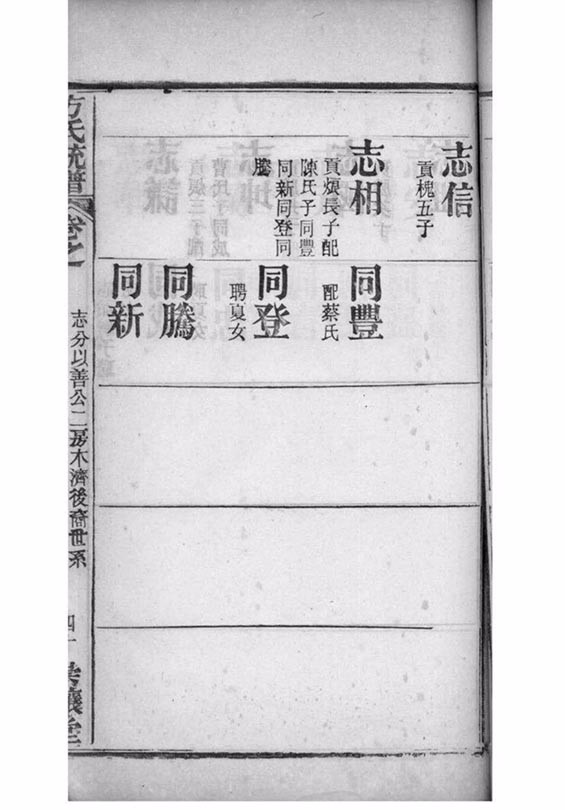 志信
貢槐五子
志相
貢爌長子配
陳氏子同豐
同新同登同
騰
同豐
配蔡氏
同登
聘夏女
同騰
同新
方氏統譜
卷之一
志分以善公二房木濟後裔世系
四十
堂